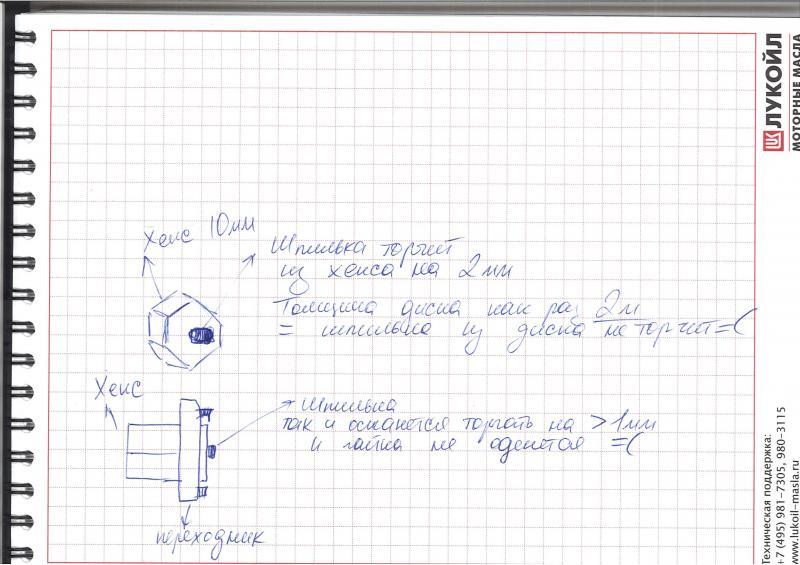 Хекс 10мм
Шпилька торчит
из хекса на 2мм
Толщина диска как раз 2м
= шпилька из диска не торчит =(
Хекс
Шпилька
так и останется торчать на >1мм
и гайка не оденется =(
переходник
ЛУКОЙЛ
МОТОРНЫЕ МАСЛА
Техническая поддержка:
+7 (495) 981-7305, 980-3115
www.lukoil-masla.ru